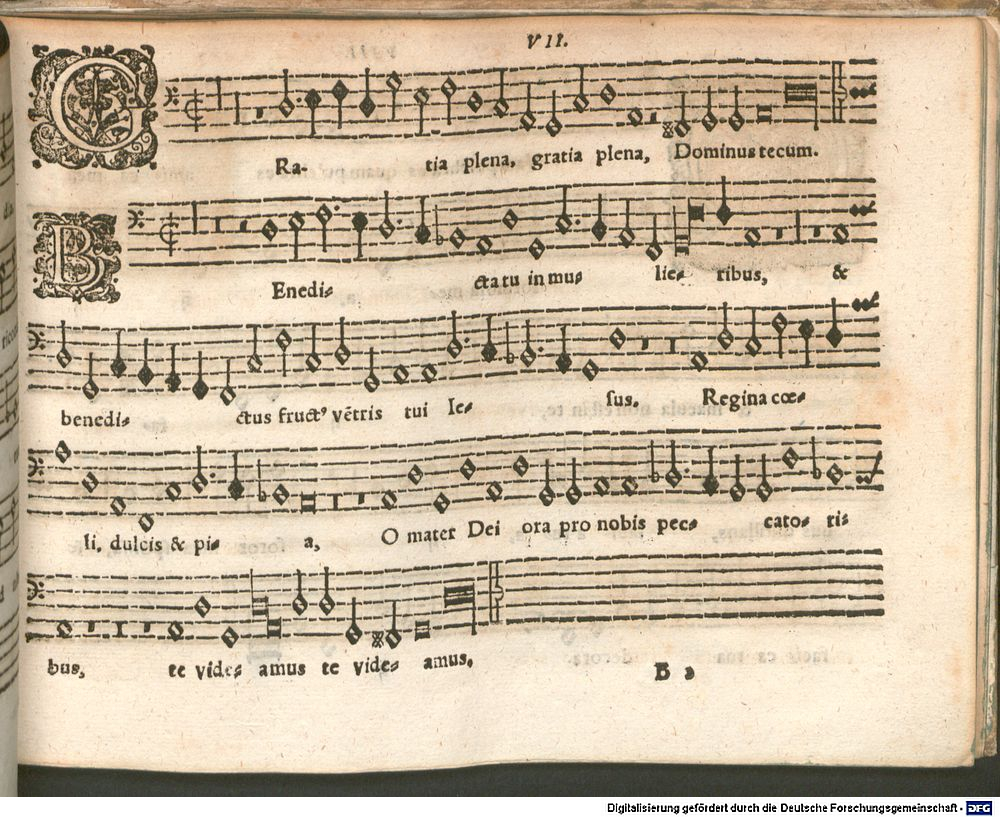 VII.
GRa- tia plena, gratia plena, Dominus tecum.
BEnedi- cta tu in mu- lie- ribus, &
benedi- ctus fruct⁹ vẽtris tui Ie- sus. Regina cœ-
li, dulcis & pi- a, O mater Dei ora pro nobis pec- cato- ri-
bus, te vide- amus te vide- amus.
B 2
Digitalisierung gefördert durch die Deutsche Forschungsgemeinschaft - DFG